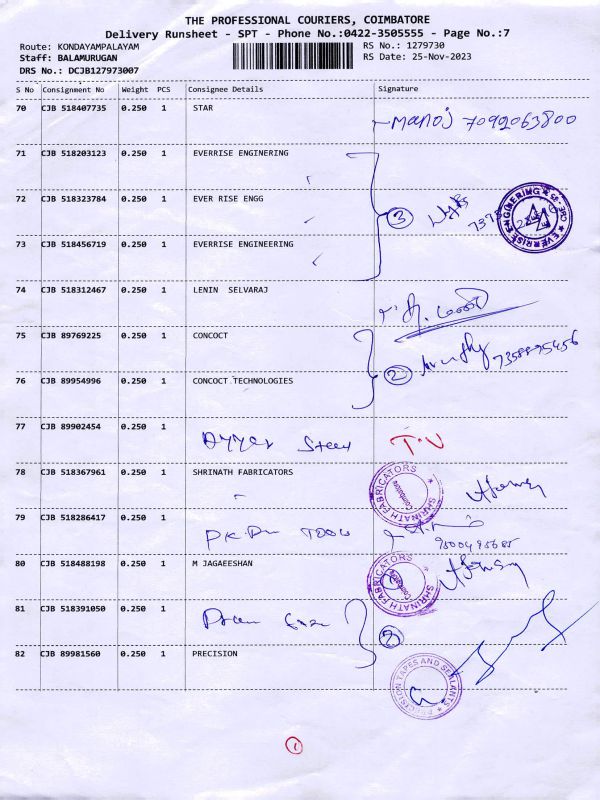 THE PROFESSIONAL COURIERS, COIMBATORE
Delivery Runsheet - SPT - Phone No.:0422-3505555 - Page No.:7
Route: KONDAYAMPALAYAM RS No.: 1279730
Staff: BALAMURUGAN RS Date: 25-Nov-2023
DRS No.: DCJB127973007
S No Consignment No Weight PCS Consignee Details Signature
70 CJB 518407735 0.250 1 STAR
Manoj 7092063800
71 CJB 518203123 0.250 1 EVERRISE ENGINERING
72 CJB 518323784 0.250 1 EVER RISE ENGG
3
EVERRISE ENGINEERING
73 CJB 518456719 0.250 1 EVERRISE ENGINEERING
74 CJB 518312467 0.250 1 LENIN SELVARAJ
75 CJB 89769225 0.250 1 CONCOCT
2
76 CJB 89954996 0.250 1 CONCOCT TECHNOLOGIES
77 CJB 89902454 0.250 1
T.V
78 CJB 518367961 0.250 1 SHRINATH FABRICATORS
SHRINATH FABRICATORS
Coimbatore
79 CJB 518286417 0.250 1
80 CJB 518488198 0.250 1 M JAGAEESHAN
SHRINATH FABRICATORS
81 CJB 518391050 0.250 1
82 CJB 89981560 0.250 1 PRECISION
PRECISION TAPES AND SEALANTS
1